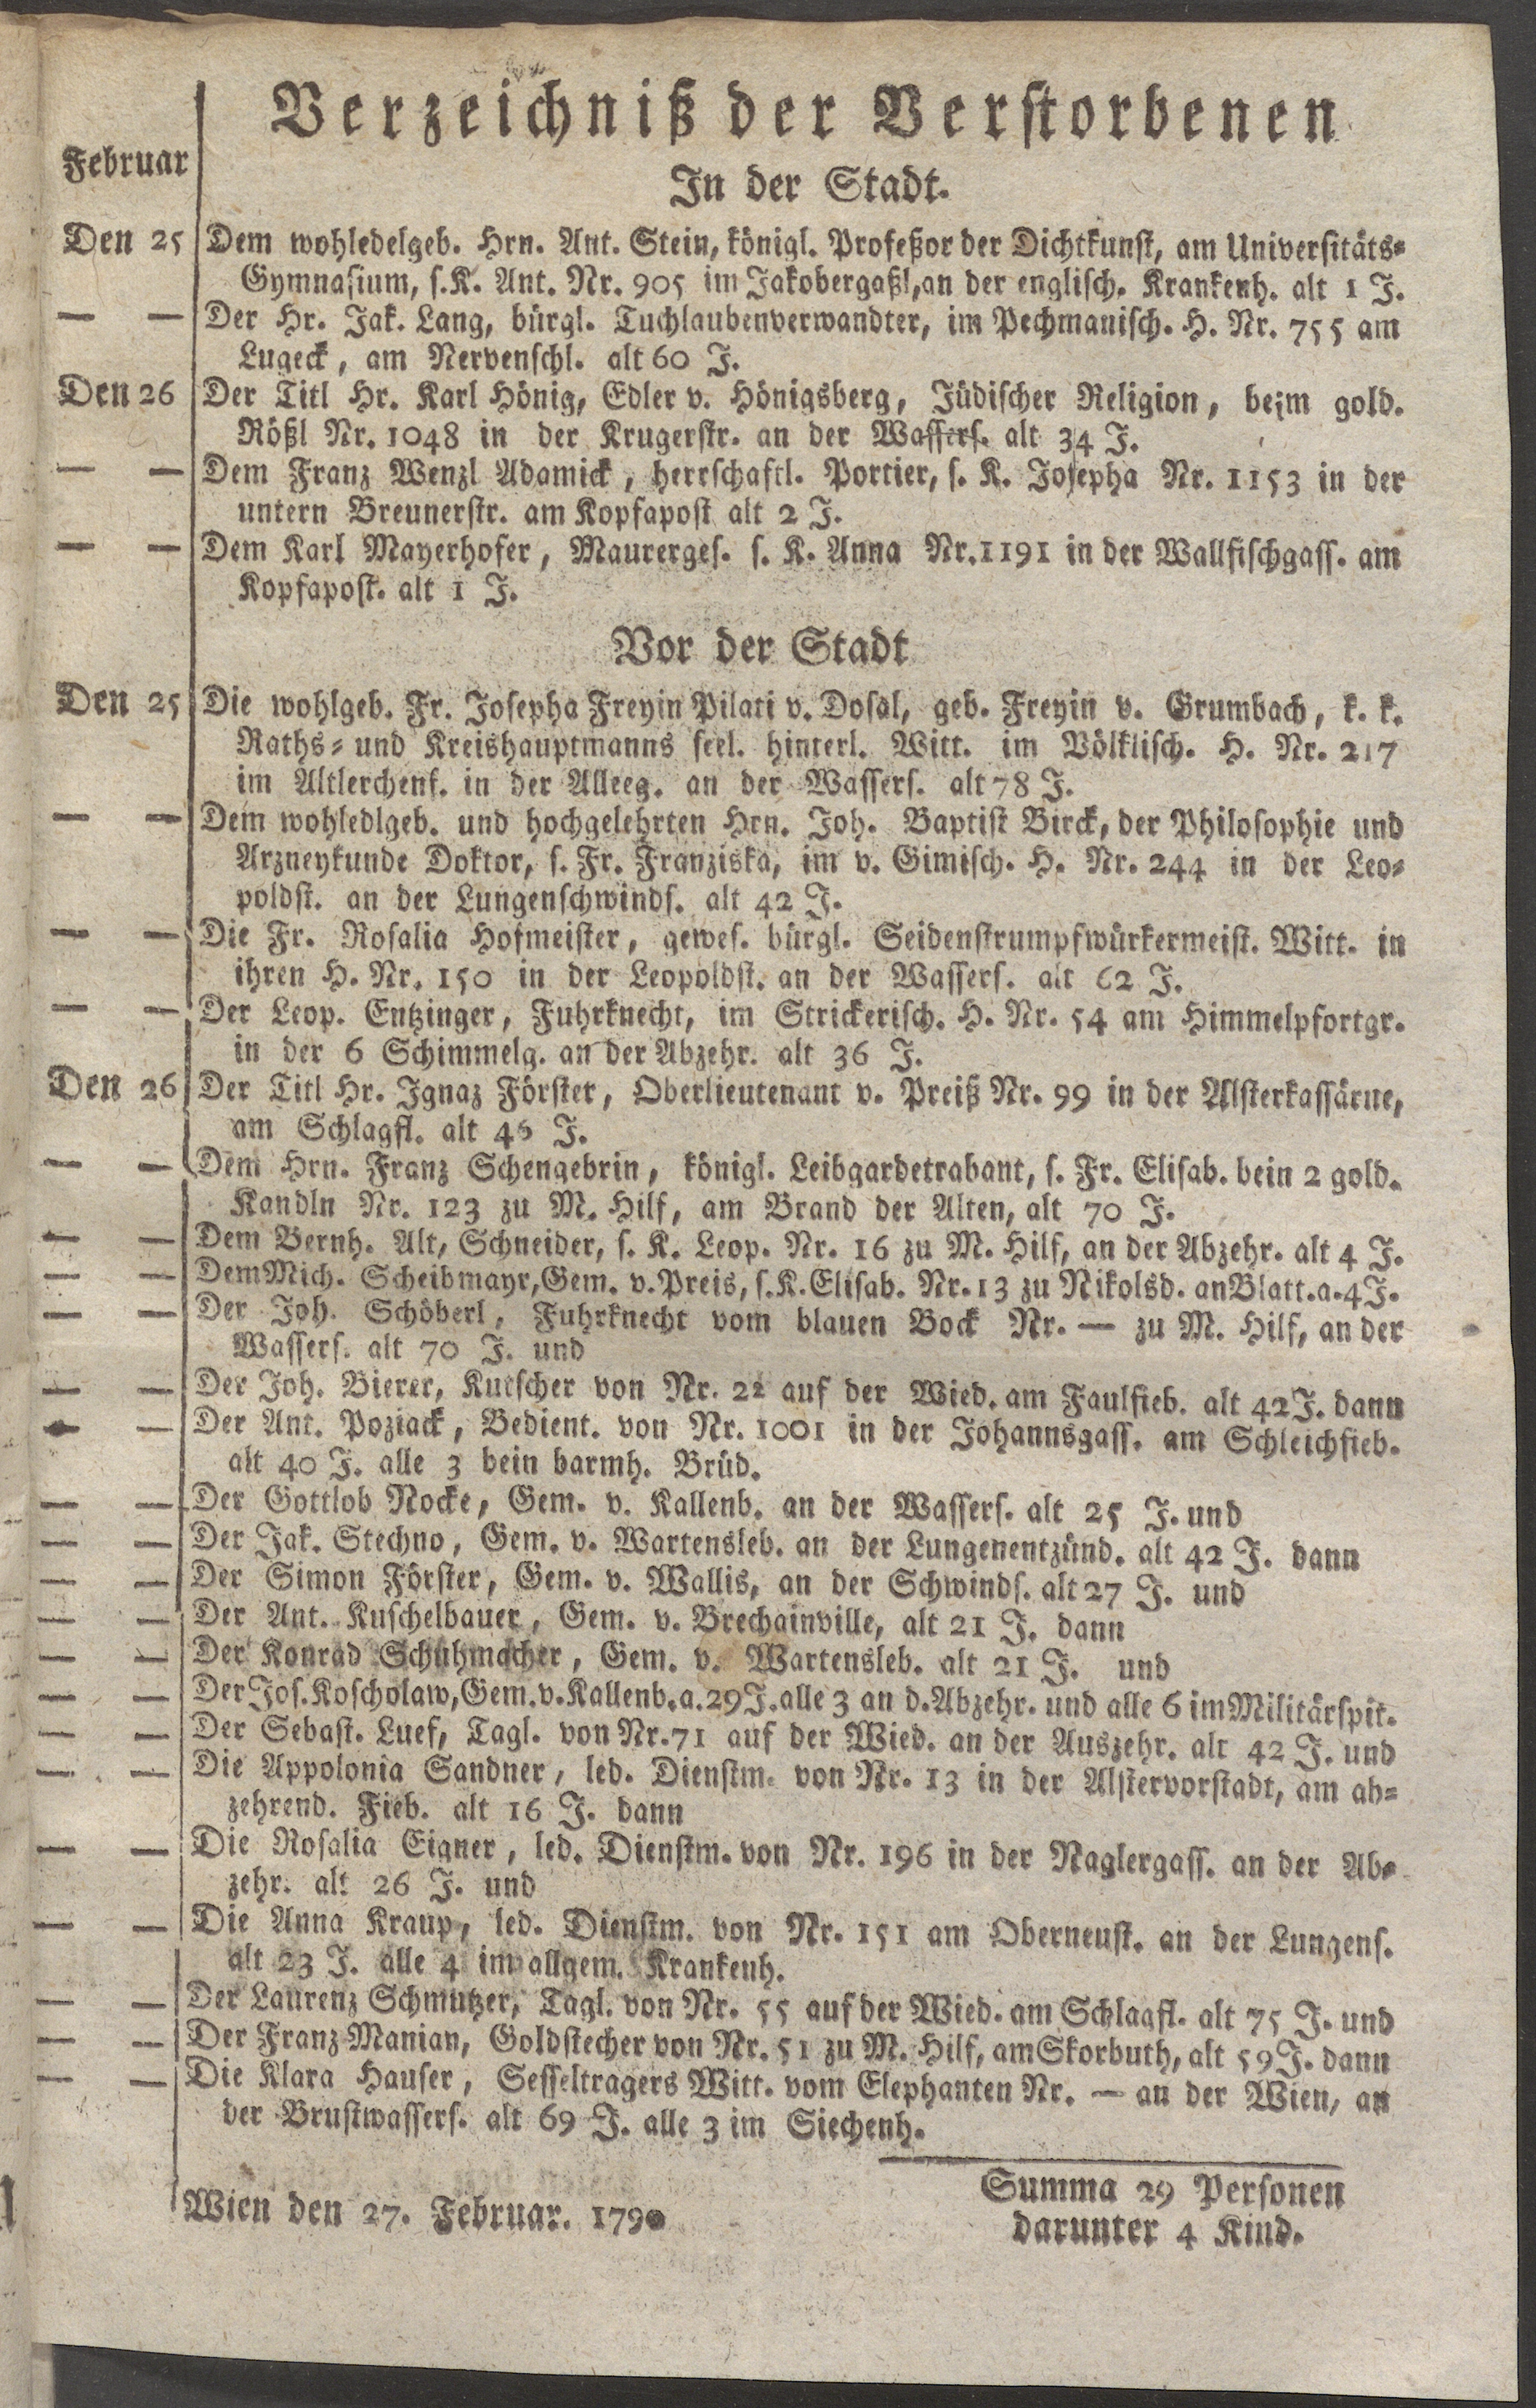 Verzeichniß der Verstorbenen
Februar
In der Stadt.
Den 25 Dem wohledelgeb. Hrn. Ant. Stein, königl. Profeßor der Dichtkunst, am Universitäts=
Gymnasium, s.K. Ant. Nr. 905 im Jakobergaßl, an der englisch. Krankenh. alt 1 J.
— — Der Hr. Jak. Lang, bürgl. Tuchlaubenverwandter, im Pechmanisch. H. Nr. 755 am
Lugeck, am Nervenschl. alt 60 J.
Den 26 Der Titl Hr. Karl Hönig, Edler v. Hönigsberg, Jüdischer Religion, beim gold.
Rößl Nr. 1048 in der Krugerstr. an der Wassers. alt 34 J.
— — Dem Franz Wenzl Adamick, herrschaftl. Portier, s. K. Josepha Nr. 1153 in der
untern Breunerstr. am Kopfapost alt 2 J.
— — Dem Karl Mayerhofer, Maurerges. s. K. Anna Nr. 1191 in der Wallfischgass. am
Kopfapost. alt 1 J.
Vor der Stadt
Den 25 Die wohlgeb. Fr. Josepha Freyin Pilati v. Dosal, geb. Freyin v. Grumbach, k. k.
Raths= und Kreishauptmanns seel. hinterl. Witt. im Völklisch. H. Nr. 217
im Altlerchenf. in der Alleeg. an der Wassers. alt 78 J.
— — Dem wohledlgeb. und hochgelehrten Hrn. Joh. Baptist Birck, der Philosophie und
Arzneykunde Doktor, s. Fr. Franziska, im v. Gimisch. H. Nr. 244 in der Leo=
poldst. an der Lungenschwinds. alt 42 J.
— — Die Fr. Rosalia Hofmeister, gewes. bürgl. Seidenstrumpfwürkermeist. Witt. in
ihren H. Nr. 150 in der Leopoldst. an der Wassers. alt 62 J.
— — Der Leop. Entzinger, Fuhrknecht, im Strickerisch. H. Nr. 54 am Himmelpfortgr.
in der 6 Schimmelg. an der Abzehr. alt 36 J.
Den 26 Der Titl Hr. Ignaz Förster, Oberlieutenant v. Preiß Nr. 99 in der Alsterkassärne,
am Schlagfl. alt 46 J.
— — Dem Hrn. Franz Schengebrin, königl. Leibgardetrabant, s. Fr. Elisab. bein 2 gold.
Kandln Nr. 123 zu M. Hilf, am Brand der Alten, alt 70 J.
— — Dem Bernh. Alt, Schneider, s. K. Leop. Nr. 16 zu M. Hilf, an der Abzehr. alt 4 J.
— — Dem Mich. Scheibmayr, Gem. v. Preis, s. K. Elisab. Nr. 13 zu Nikolsd. an Blatt. a. 4 J.
— — Der Joh. Schöberl, Fuhrknecht vom blauen Bock Nr. — zu M. Hilf, an der
Wassers. alt 70 J. und
— — Der Joh. Bierer, Kutscher von Nr. 22 auf der Wied. am Faulfieb. alt 42 J. dann
— — Der Ant. Poziack, Bedient. von Nr. 1001 in der Johannsgass. am Schleichfieb.
alt 40 J. alle 3 bein barmh. Brüd.
— — Der Gottlob Nocke, Gem. v. Kallenb. an der Wassers. alt 25 J. und
— — Der Jak. Stechno, Gem. v. Wartensleb. an der Lungenentzünd. alt 42 J. dann
— — Der Simon Förster, Gem. v. Wallis, an der Schwinds. alt 27 J. und
— — Der Ant. Kuschelbauer, Gem. v. Brechainville, alt 21 J. dann
— — Der Konrad Schuhmacher, Gem. v. Wartensleb. alt 21 J. und
— — Der Jos. Koscholaw, Gem. v. Kallenb. a. 29 J. alle 3 an d. Abzehr. und alle 6 im Militärspit.
— — Der Sebast. Luef, Tagl. von Nr. 71 auf der Wied. an der Auszehr. alt 42 J. und
— — Die Appolonia Sandner, led. Dienstm. von Nr. 13 in der Alstervorstadt, am ab=
zehrend. Fieb. alt 16 J. dann
— — Die Rosalia Eigner, led. Dienstm. von Nr. 196 in der Naglergass. an der Ab=
zehr. alt 26 J. und
— — Die Anna Kraup, led. Dienstm. von Nr. 151 am Oberneust. an der Lungens.
alt 23 J. alle 4 im allgem. Krankenh.
— — Der Laurenz Schmutzer, Tagl. von Nr. 55 auf der Wied. am Schlagfl. alt 75 J. und
— — Der Franz Manian, Goldstecher von Nr. 51 zu M. Hilf, am Skorbuth, alt 59 J. dann
— — Die Klara Hauser, Sesseltragers Witt. vom Elephanten Nr. — an der Wien, an
der Brustwassers. alt 69 J. alle 3 im Siechenh.
Summa 29 Personen
Wien den 27. Februar. 1790
darunter 4 Kind.